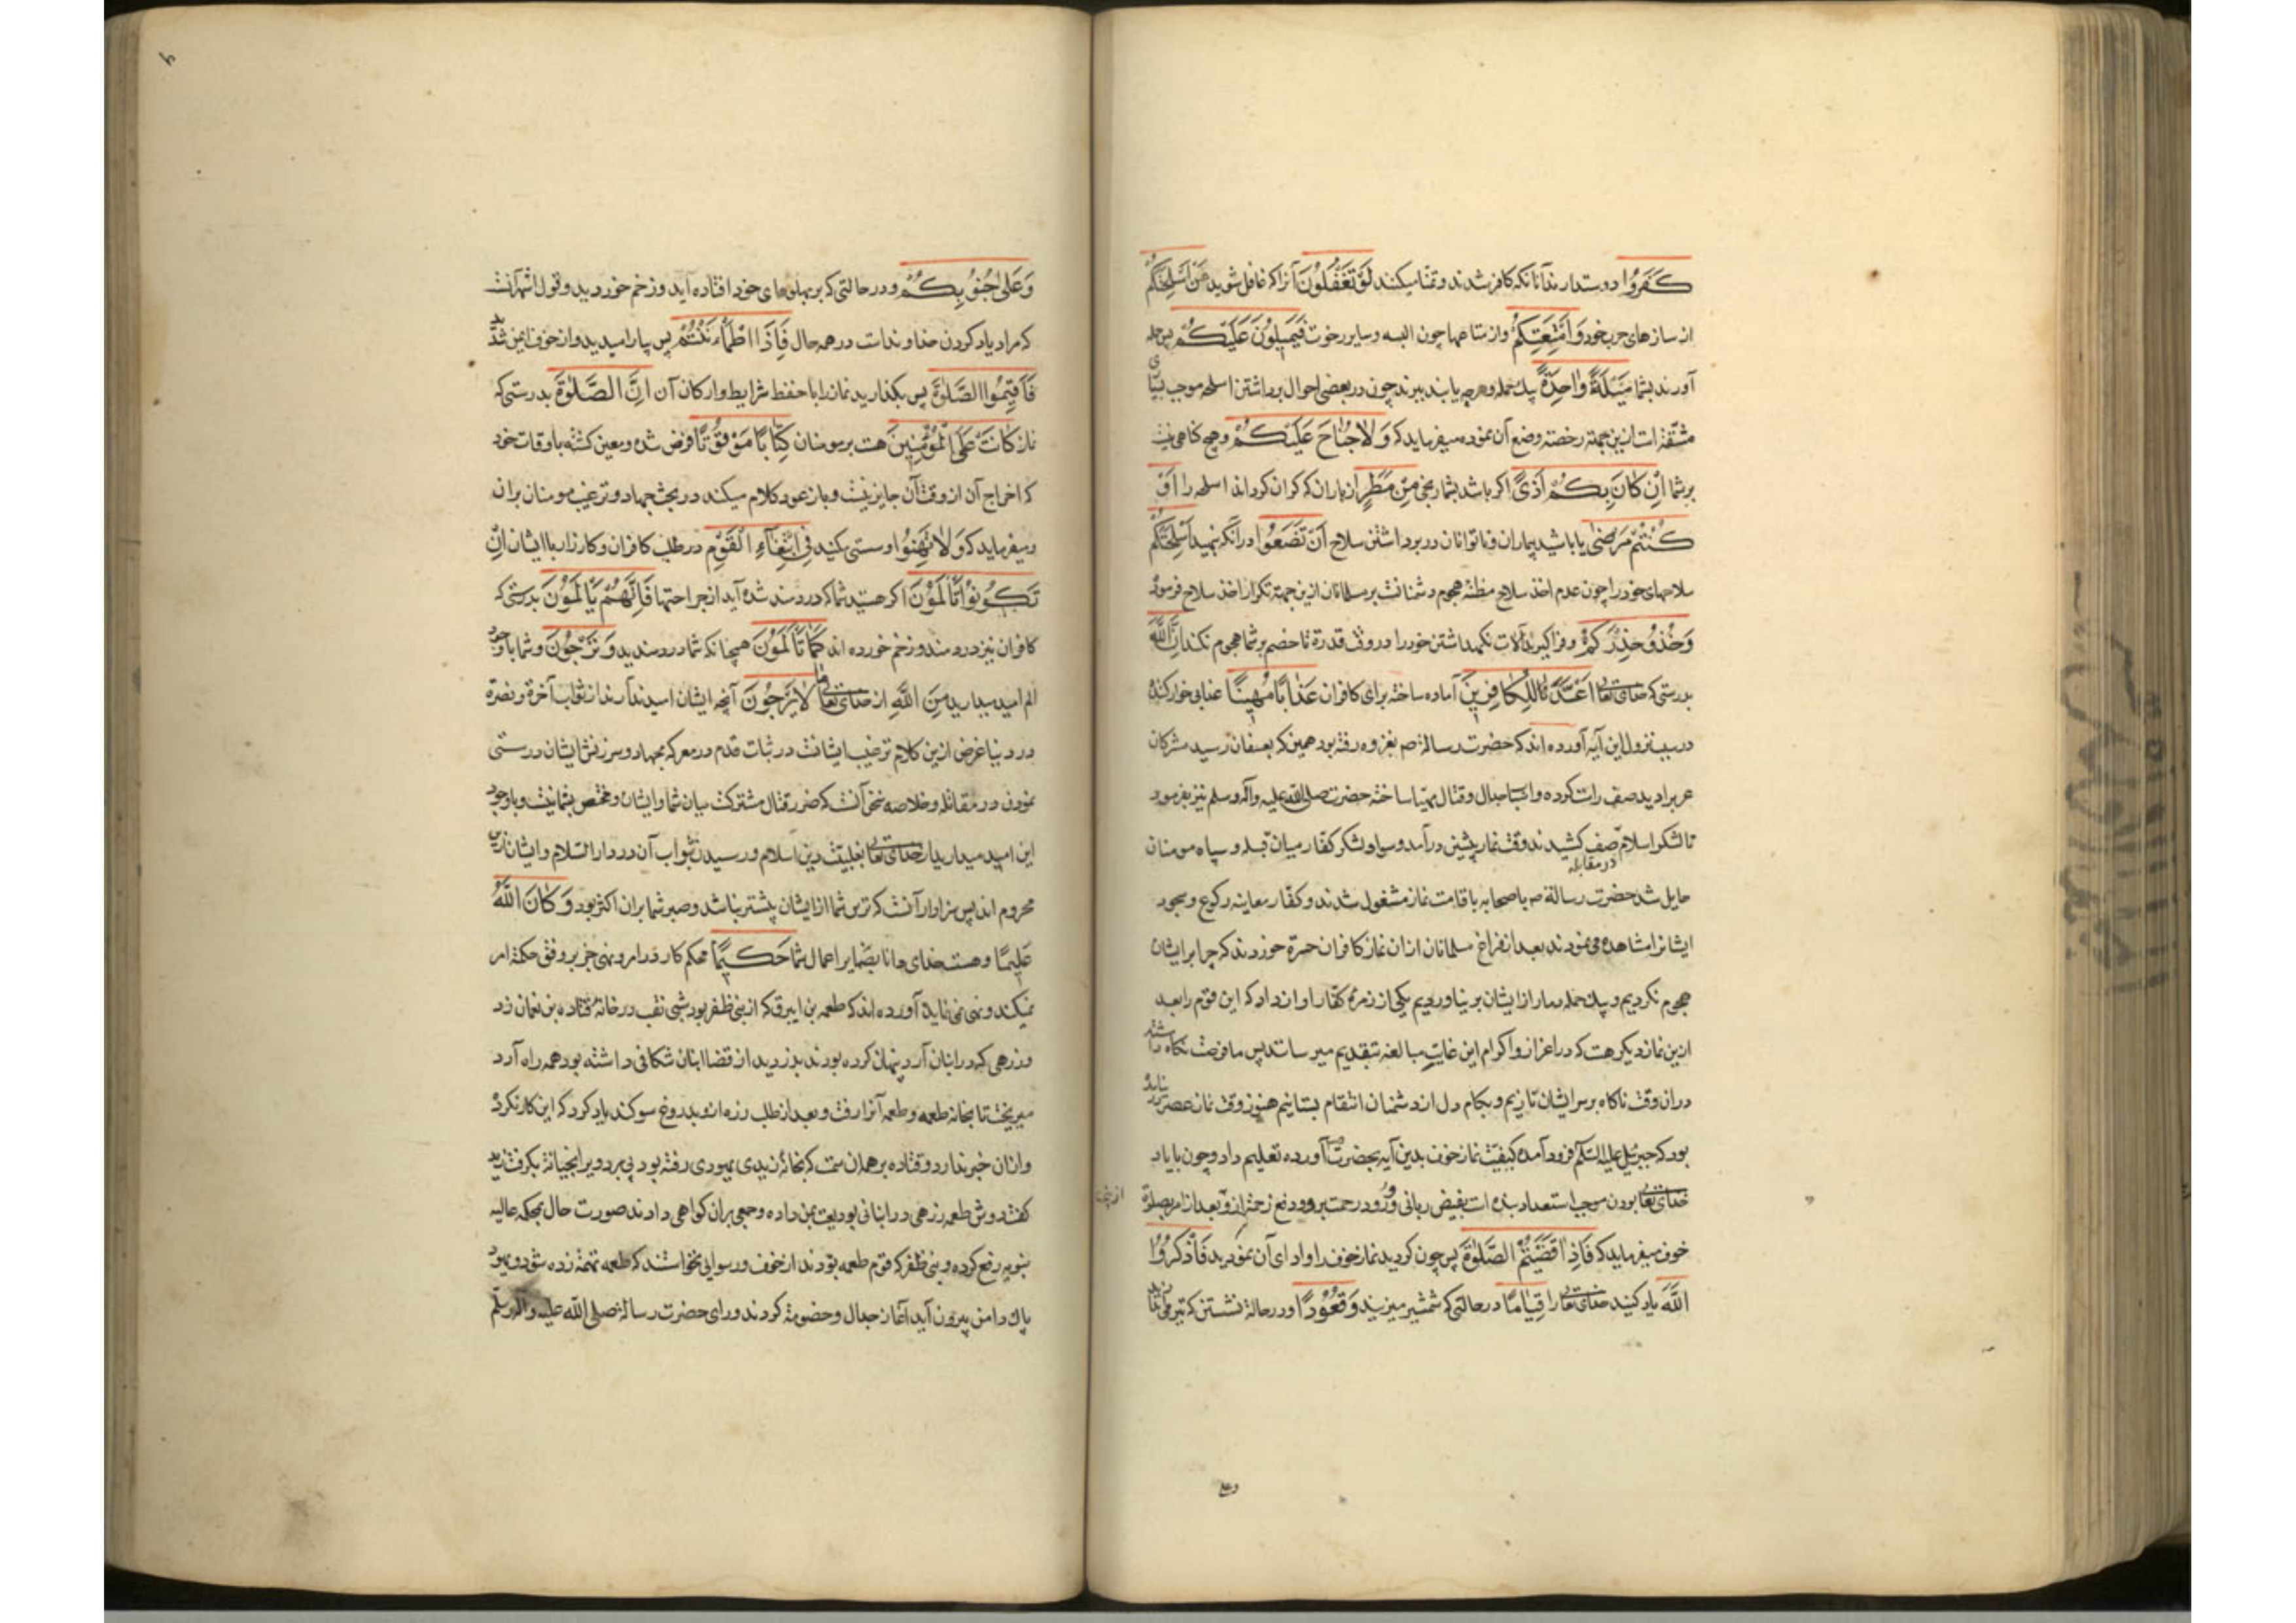 كَفَرُوا دوستدارند آنانکه کافر شدند و تمنا میکنند لَوْ تَغْفُلُونَ آنرا که غافل شوید عَنْ أَسْلِحَتِكُمْ
از سازهای حرب خود وَأَمْتِعَتِكُمْ واز متاعها چون البسه وسایر رخوت فَيَمِيلُونَ عَلَيْكُمْ پس حمله
آورند بشما مَيْلَةً وَاحِدَةً یك حمله و هرچه یابند ببرند چون در بعضی احوال برداشتن اسلحه موجب
مشقة است ازین جهة رخصته وضع آن نموده میفرماید که وَلَا جُنَاحَ عَلَيْكُمْ وهیچ کناهی نیست
بر شما اِنْ كَانَ بِكُمْ أَذًى اکر باشد بشما رنجی مِنْ مَطَرٍ از باران که کران کرداند اسلحه را اَوْ
كُنْتُمْ مَرْضَى یا باشید بیماران وناتوانان در برداشتن سلاح أَنْ تَضَعُوا در آنکه بنهید أَسْلِحَتَكُمْ
سلاحهای خود را چون عدم اخذ سلاح مظنه هجوم دشمنانست بر مسلمانان ازین جهة تکرار اخذ سلاح فرموده
وَخُذُوا حِذْرَكُمْ وفراکیرید آلات نکهداشتن خود را در وقت قدرة تا خصم بر شما هجوم نکند اِنَّ اللّٰهَ
بدرستی که خدای تعالی اَعَدَّ لِلْكَافِرِينَ آماده ساخته برای کافران عَذَابًا مُهِينًا عذابی خوار کننده
در سبب نزول این آیه آورده اند که حضرت رسالة صم بغزوه رفته بود همین که بعسفان رسید مشرکان
عرب را دید صف راست کرده واسباب جدال وقتال مهیا ساخته حضرت صلی الله علیه وآله وسلم نیز بفرمود
تا لشکر اسلام صف کشیدند وقت نماز پیشین درآمد وسپاه ولشکر کفار میان قبله وسپاه مومنان
در مقابله
حایل شد حضرت رسالة صم با صحابه باقامت نماز مشغول شدند وکفار معاینه رکوع وسجود
ایشانرا مشاهده می نمودند بعد از فراغ مسلمانان از آن نماز کافران حسرة خوردند که چرا بر ایشان
هجوم نکردیم وبیك حمله دمار از ایشان بر نیاوردیم یکی از زمره کفار اواز داد که این قوم را بعد
ازین نماز دیکر هست که در اعزاز واکرام این غایت مبالغه بتقدیم میرسانند پس ما فرصت نکاه داشته
در ان وقت ناکاه بر سر ایشان تازیم وبکام دل از دشمنان انتقام بستانیم هنوز وقت نماز عصر
بود که جبرئیل علیه السلم فرود آمده کیفیت نماز خوف بدین آیه بحضرت آورده تعلیم داد وچون با یاد
خدای تعالی بودن موجب استعداد بنده است بفیض ربانی وورود رحمت برو ودفع زحمت ازو بعد از امر بصلوة
خوف میفرماید که فَاِذَا قَضَيْتُمُ الصَّلٰوةَ پس چون کردید نماز خوف را وادای آن نمودید فَاذْكُرُوا
اللّٰهَ یاد کنید خدای تعالی را قِيَامًا در حالتی که شمشیر میزنید وَقُعُودًا ودر حالة نشستن که تیر می
وعلی
وَعَلَى جُنُوبِكُمْ ودر حالتی که بر پهلوهای خود افتاده آید وزخم خورده‌ید وقول اشهر آنست
که مراد یاد کردن خداوندست در همه حال فَاِذَا اطْمَأْنَنْتُمْ پس بیارامیدید واز خوف ایمن شدید
فَأَقِيمُوا الصَّلٰوةَ پس بکذارید نماز را با حفظ شرایط وارکان آن اِنَّ الصَّلٰوةَ بدرستی که
نماز كَانَتْ عَلَى الْمُؤْمِنِينَ هست بر مومنان كِتَابًا مَوْقُوتًا فرض شده ومعین کشته باوقات خود
که اخراج آن از وقت آن جایز نیست وباز عود کلام میکند در بحث جهاد وترغیب مومنان بران
ومیفرماید که وَلَا تَهِنُوا وسستی مکنید فِي ابْتِغَاءِ الْقَوْمِ در طلب کافران وکارزار با ایشان اِنْ
تَكُونُوا تَأْلَمُونَ اکر هستید شما که دردمند شده آید از جراحتها فَاِنَّهُمْ يَأْلَمُونَ بدرستی که
کافران نیز دردمند وزخم خورده اند كَمَا تَأْلَمُونَ همچنانکه شما دردمندید وَتَرْجُونَ وشما با وجود
الم امید میدارید مِنَ اللّٰهِ از خدای تعالی مَا لَا يَرْجُونَ آنچه ایشان امید ندارند از ثواب آخرة ونصرة
در دنیا غرض ازین کلام ترغیب ایشانست در ثبات قدم در معرکه جهاد وسرزنش ایشان در سستی
نمودن در مقاتله وخلاصه سخن آنست که ضرر قتال مشترکست میان شما وایشان ومختص بشما نیست وبا وجود
این امید میدارید از خدای تعالی بغلبیت دین اسلام ورسیدن بثواب آن در دار السلام وایشان ازین
محروم اند پس سزاوار آنست که ترس شما از ایشان بیشتر نباشد وصبر شما بران اکثر بود وَكَانَ اللّٰهُ
عَلِيمًا وهست خدای دانا بضمایر اعمال شما حَكِيمًا محکم کار در امر ونهی جز بر وفق حکمة امر
نمیکند ونهی نمی نماید آورده اند که طعمه بن ابیرق که از بنی ظفر بود شبی نقب در خانه قتاده بن نعمان زد
وزرهی که در انبان آرد پنهان کرده بودند بدزدید از قضا انبان شکافی داشته بود همه راه آرد
میریخت تا بخانه طعمه وطعمه آنرا رفت وبعد از طلب زره از وی بدروغ سوکند یاد کرد که این کار نکرده
وازان خبر ندارد وقتاده بر همان سمت که بخانه زید یهودی رفته بود پی برد ویرا بخیانة بکرفت زید
کفت دوش طعمه زرهی در انبانی بودیعت بمن داده وجمعی بران کواهی دادند صورت حال بمحکمه عالیه
نبویه رفع کرده وبنی ظفر که قوم طعمه بودند از خوف ورسوایی نخواستند که طعمه تهمة زده شود ویهود
پاك دامن بیرون آید آغاز جدال وخصومة کردند ورای حضرت رسالة صلی الله علیه وآله وسلم